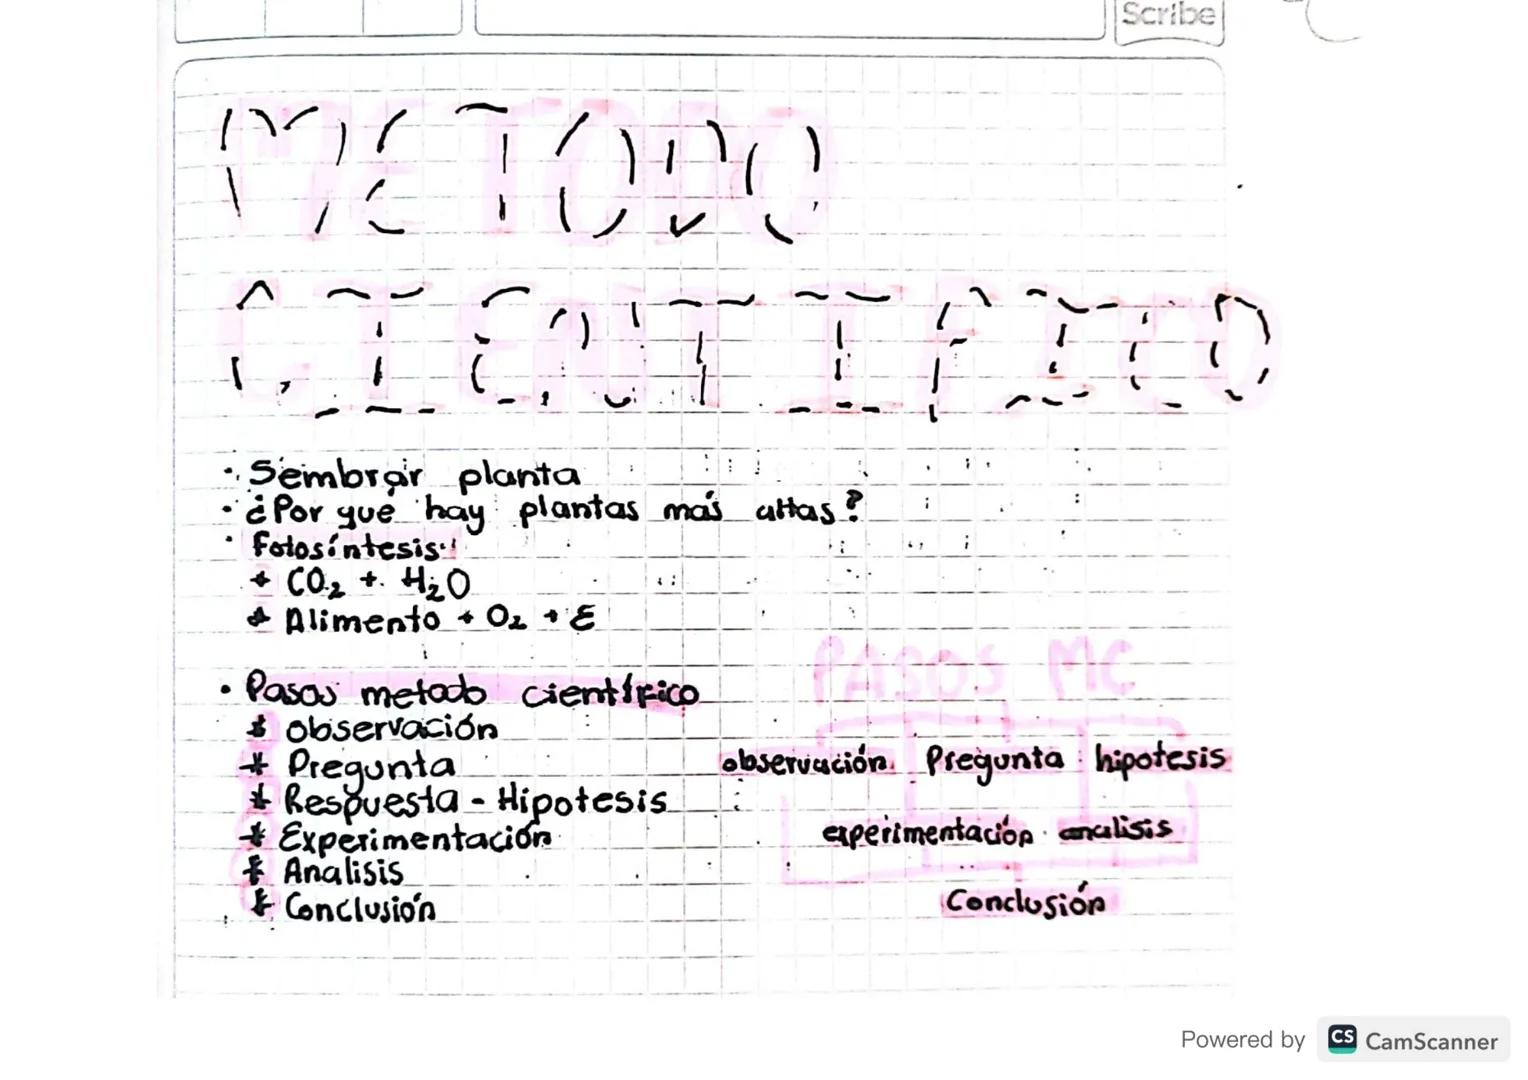 Scribe
METODO
CIENTIFICO
· Sembrar planta
· ¿Por que hay plantas más altas?
· Fotosíntesis
+ CO₂ + H₂O
+ Alimento + O₂ + E
· Pasos metodo científico
* observación
* Pregunta
* Respuesta - Hipotesis
* Experimentación
* Analisis
* Conclusión
PASOS MC
observación Pregunta hipotesis
experimentación analisis
Conclusión
Powered by CS CamScanner